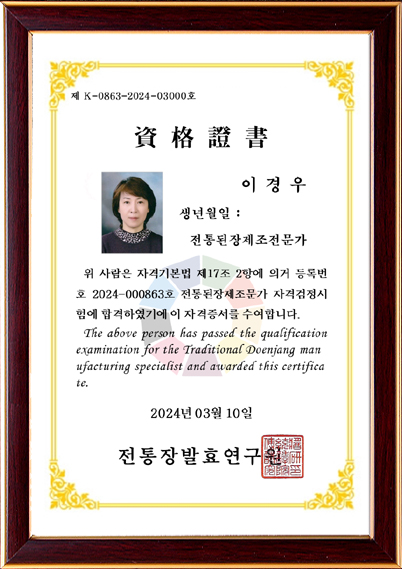 제 K-0863-2024-03000호
資格證書
이경우
생년월일 :
전통된장제조전문가
위 사람은 자격기본법 제17조 2항에 의거 등록번
호 2024-000863호 전통된장제조문가 자격검정시
험에 합격하였기에 이 자격증서를 수여합니다.
The above person has passed the qualification
examination for the Traditional Doenjang man
ufacturing specialist and awarded this certifica
te.
2024년 03월 10일
전통장발효연구원